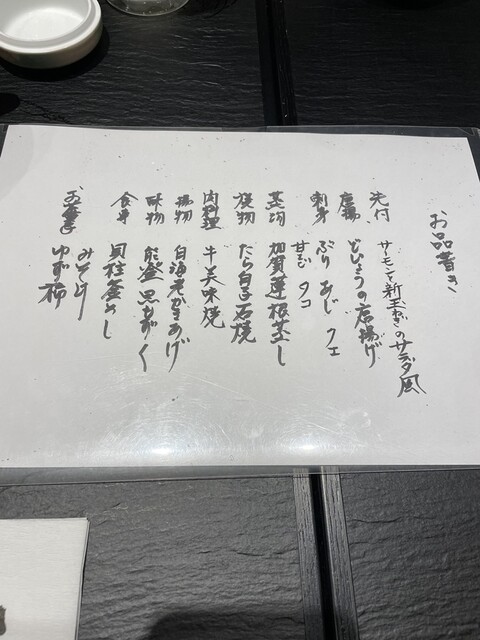 お品書き
先付 サーモンと新玉ねぎのサラダ風
唐揚 どじょうの唐揚げ
刺身 ぶり あじ フエ
甘えび タコ
蒸物 加賀蓮根蒸し
焼物 たら白子石焼
肉料理 牛美味焼
揚物 白海老かきあげ
酢物 能登黒もずく
食事 貝柱釜めし
みそ汁
ゆず柿